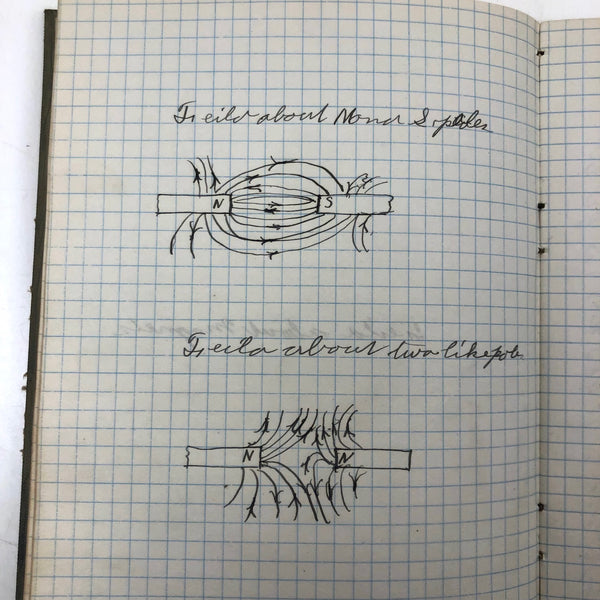 Feild about N and S poles
N S
Feild about two like poles
N N